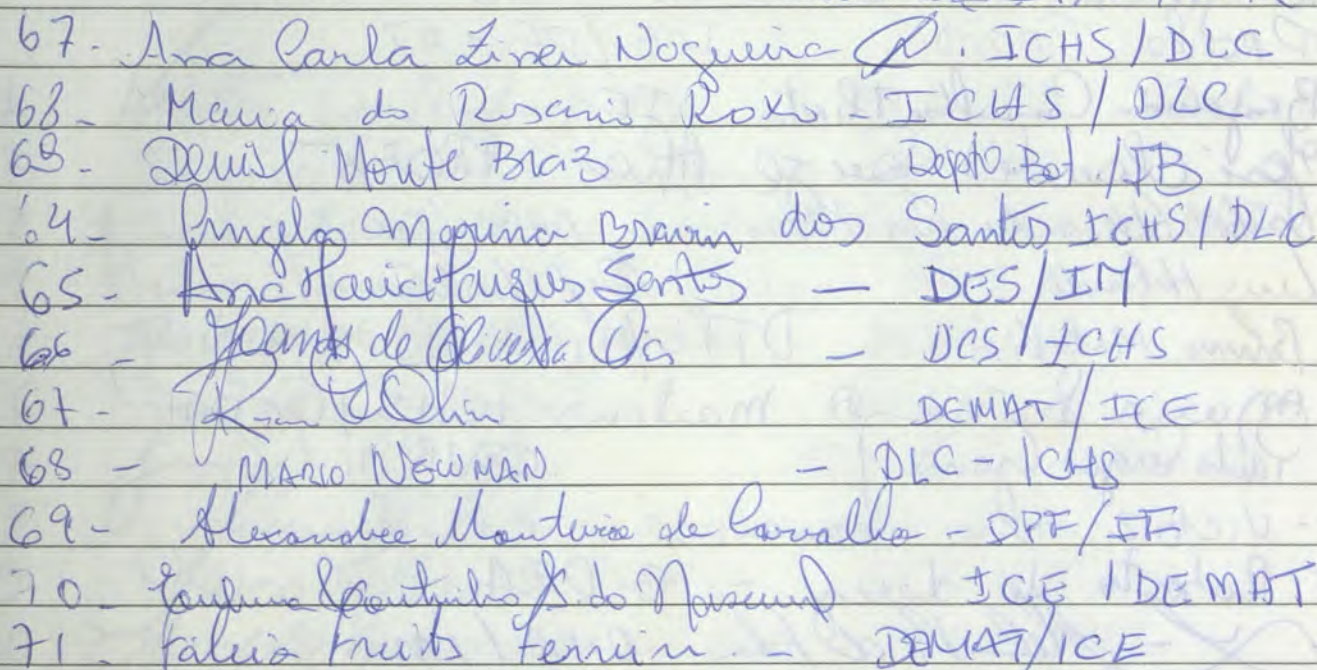 67. Ana Carla Ziner Nogueira . ICHS / DLC
68- Maria do Rosario Roxo - ICHS / DLC
63- Denise Monte Braz Depto. Bot. / IB
64- Angela Marina Bravin dos Santos ICHS / DLC
65- Ana Maria Marques Santos — DES/IM
66 - de Oliveira — DCS / ICHS
67- DEMAT / ICE
68 - MARIO NEWMAN - DLC - ICHS
69- Alexandre Monteiro de Carvalho - DPF/IF
70- Coutinho S. do ICE / DEMAT
71. Ferreira - DEMAT/ICE